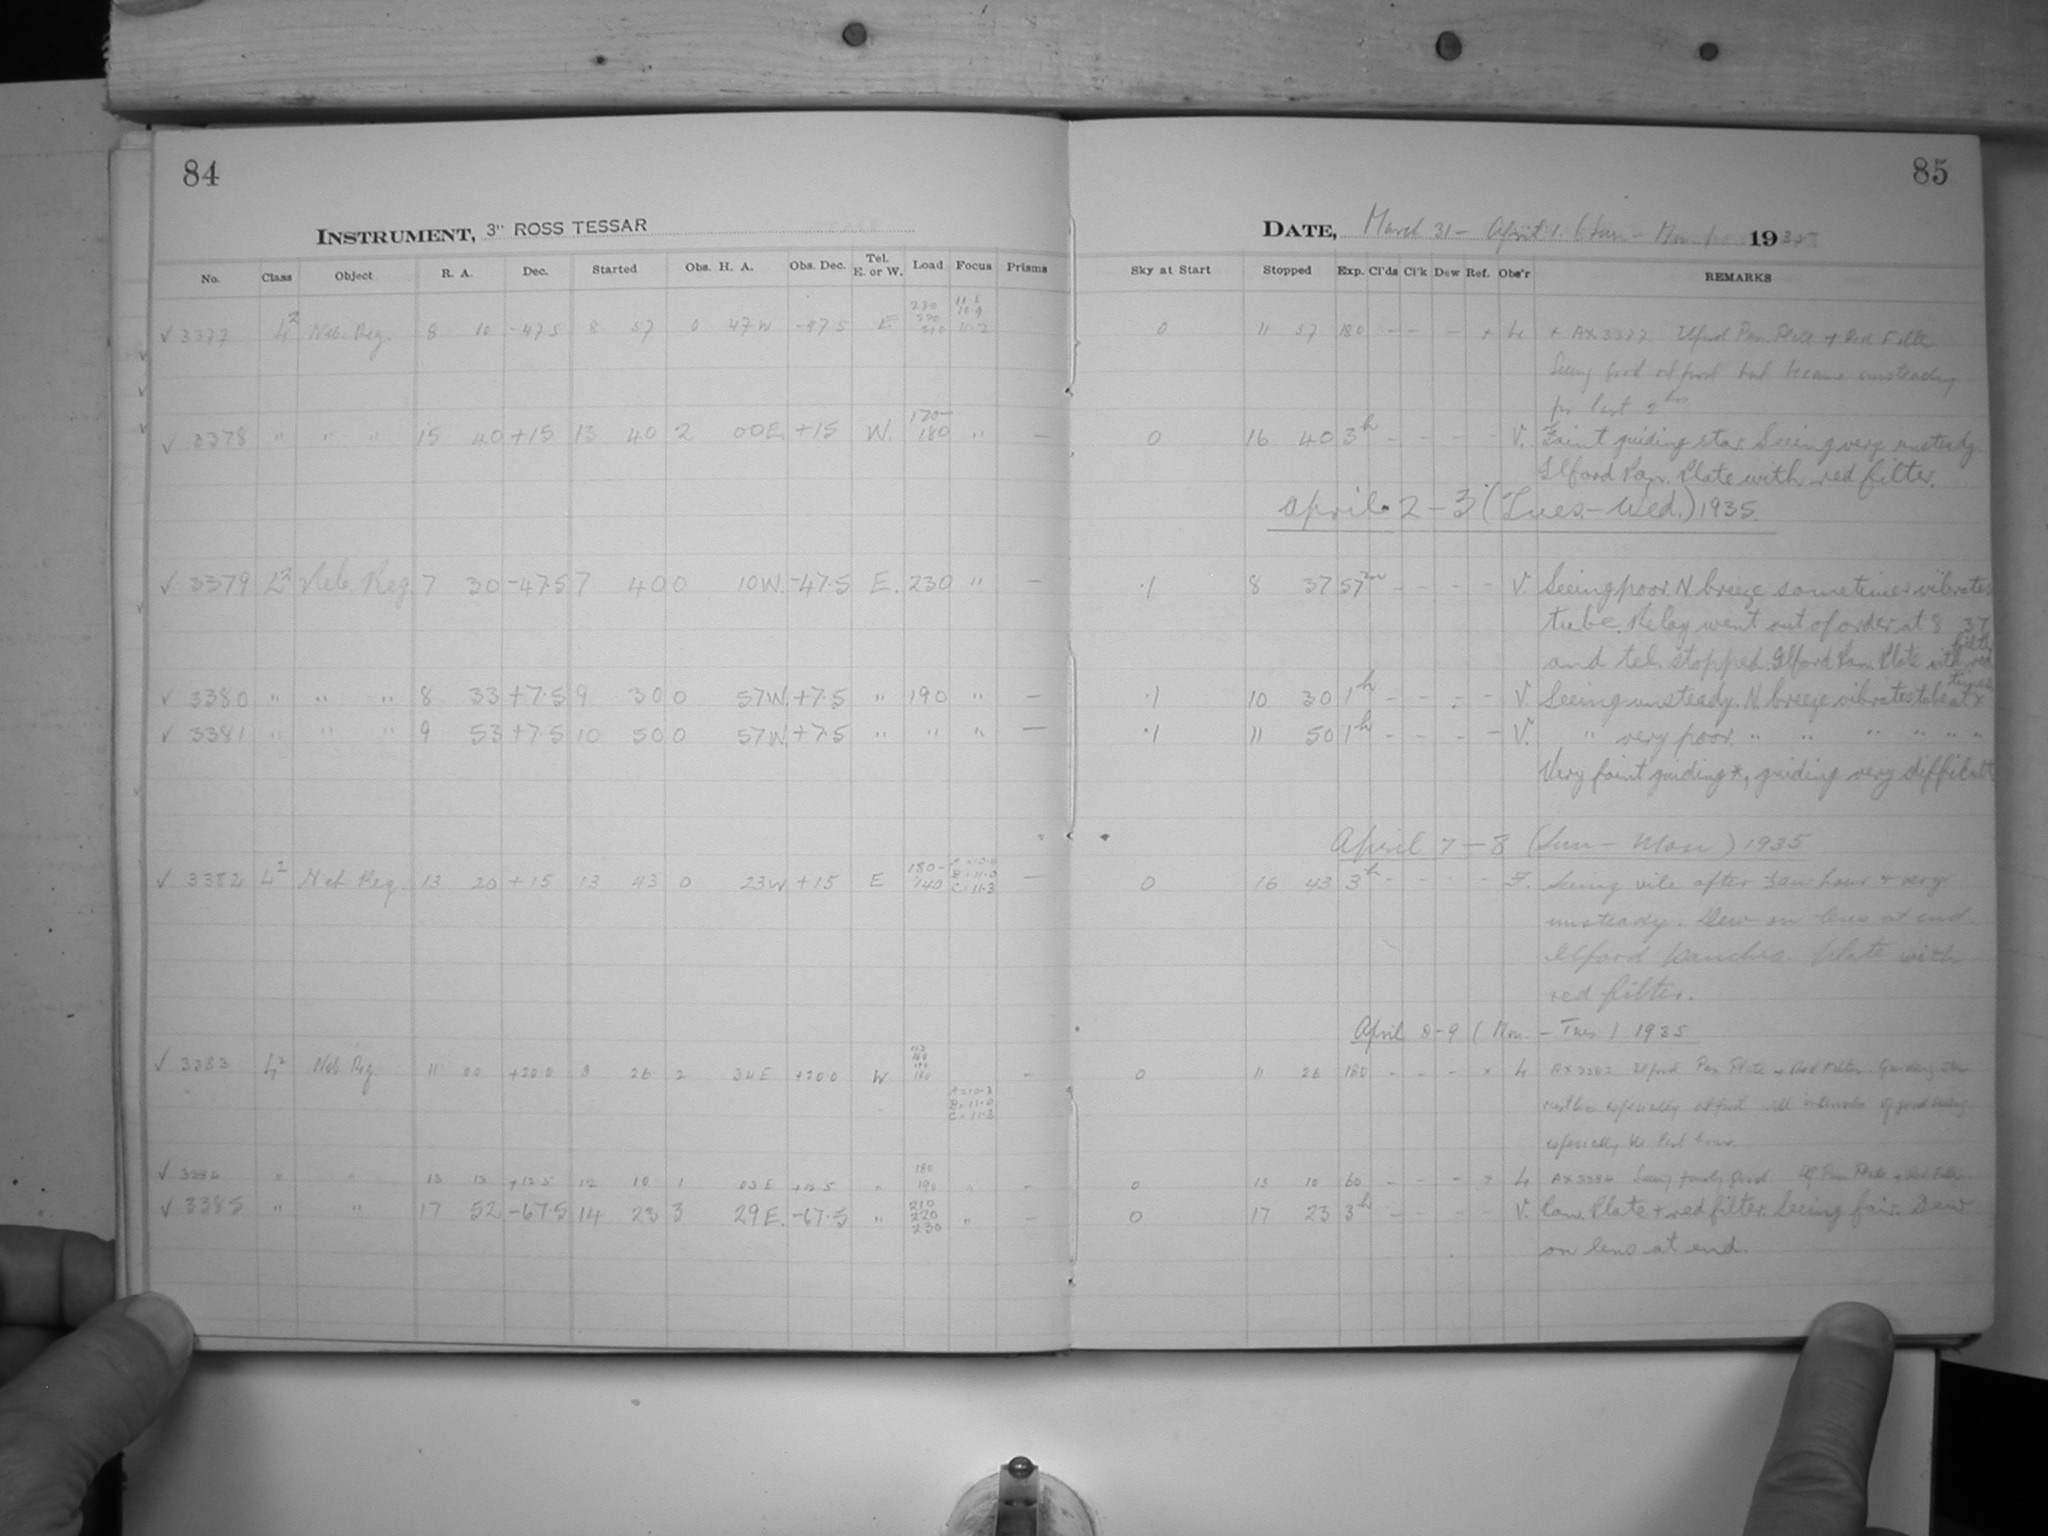 84
INSTRUMENT, 3" ROSS TESSAR
No. Class Object R. A. Dec. Started Obs. H. A. Obs. Dec. Tel. E. or W. Load Focus Prisms
✓ 3377 L² Neb. Reg. 8 10 -47.5 8 57 0 47 W -47.5 E 230 220 210 11.5 10.9 11.2
✓ 3378 " " " 15 40 +15 13 40 2 00 E. +15 W. 170- 180 " —
✓ 3379 L² Neb. Reg. 7 30 -47.5 7 40 0 10 W. -47.5 E. 230 " —
✓ 3380 " " " 8 33 +7.5 9 30 0 57 W. +7.5 " 190 " —
✓ 3381 " " " 9 53 +7.5 10 50 0 57 W. +7.5 " " " —
✓ 3382 L² Neb Reg. 13 20 +15 13 43 0 23 W +15 E 180- 140 B = 11.0 C = 11.3 —
✓ 3383 L² Neb Reg 11 00 +20.0 8 26 2 34 E +20.0 W A = 10.3 B = 11.0 C = 11.3 —
✓ 3384 " " 13 13 +12.5 12 10 1 03 E +12.5 " 180 190 " —
✓ 3385 " " 17 52 -67.5 14 23 3 29 E. -67.5 " 210 220 230 " —
85
DATE, March 31 - April 1. (Sun - Mon) 1935
Sky at Start Stopped Exp. Cl'ds Cl'k Dew Ref. Obs'r REMARKS
0 11 57 180 - - - + L + AX 3377 Ilford Pan. Plate + Red Filter
Seeing good at first but became unsteady
for last 2 hrs
0 16 40 3h - - - - V. Faint guiding star. Seeing very unsteady.
Ilford Pan. Plate with red filter.
April 2 - 3 (Tues. - Wed.) 1935.
.1 8 37 57m - - - - V. Seeing poor. N. breeze sometimes vibrates
tube. Relay went out of order at 8 37
and tel. stopped. Ilford Pan. Plate with red filter
.1 10 30 1h - - - - V Seeing unsteady. N. breeze vibrates tube at times
.1 11 50 1h - - - - V. " very poor. " " " " " "
Very faint guiding *, guiding very difficult
April 7 - 8 (Sun - Mon) 1935
0 16 43 3h - - - - F. Seeing vile after ½ an hour + very
unsteady. Dew on lens at end
Ilford Panchro. plate with
red filter.
April 8-9 (Mon - Tues) 1935
0 11 26 180 - - - x L AX 3383 Ilford Pan Plate + Red Filter. Guiding Star
especially at first with intervals of good seeing
especially the last hour.
0 13 10 60 - - - x L AX 3384 Seeing fairly good. Ilf. Pan Plate + Red Filter
0 17 23 3h - - - - V. Pan. Plate + red filter. Seeing fair. Dew
on lens at end.